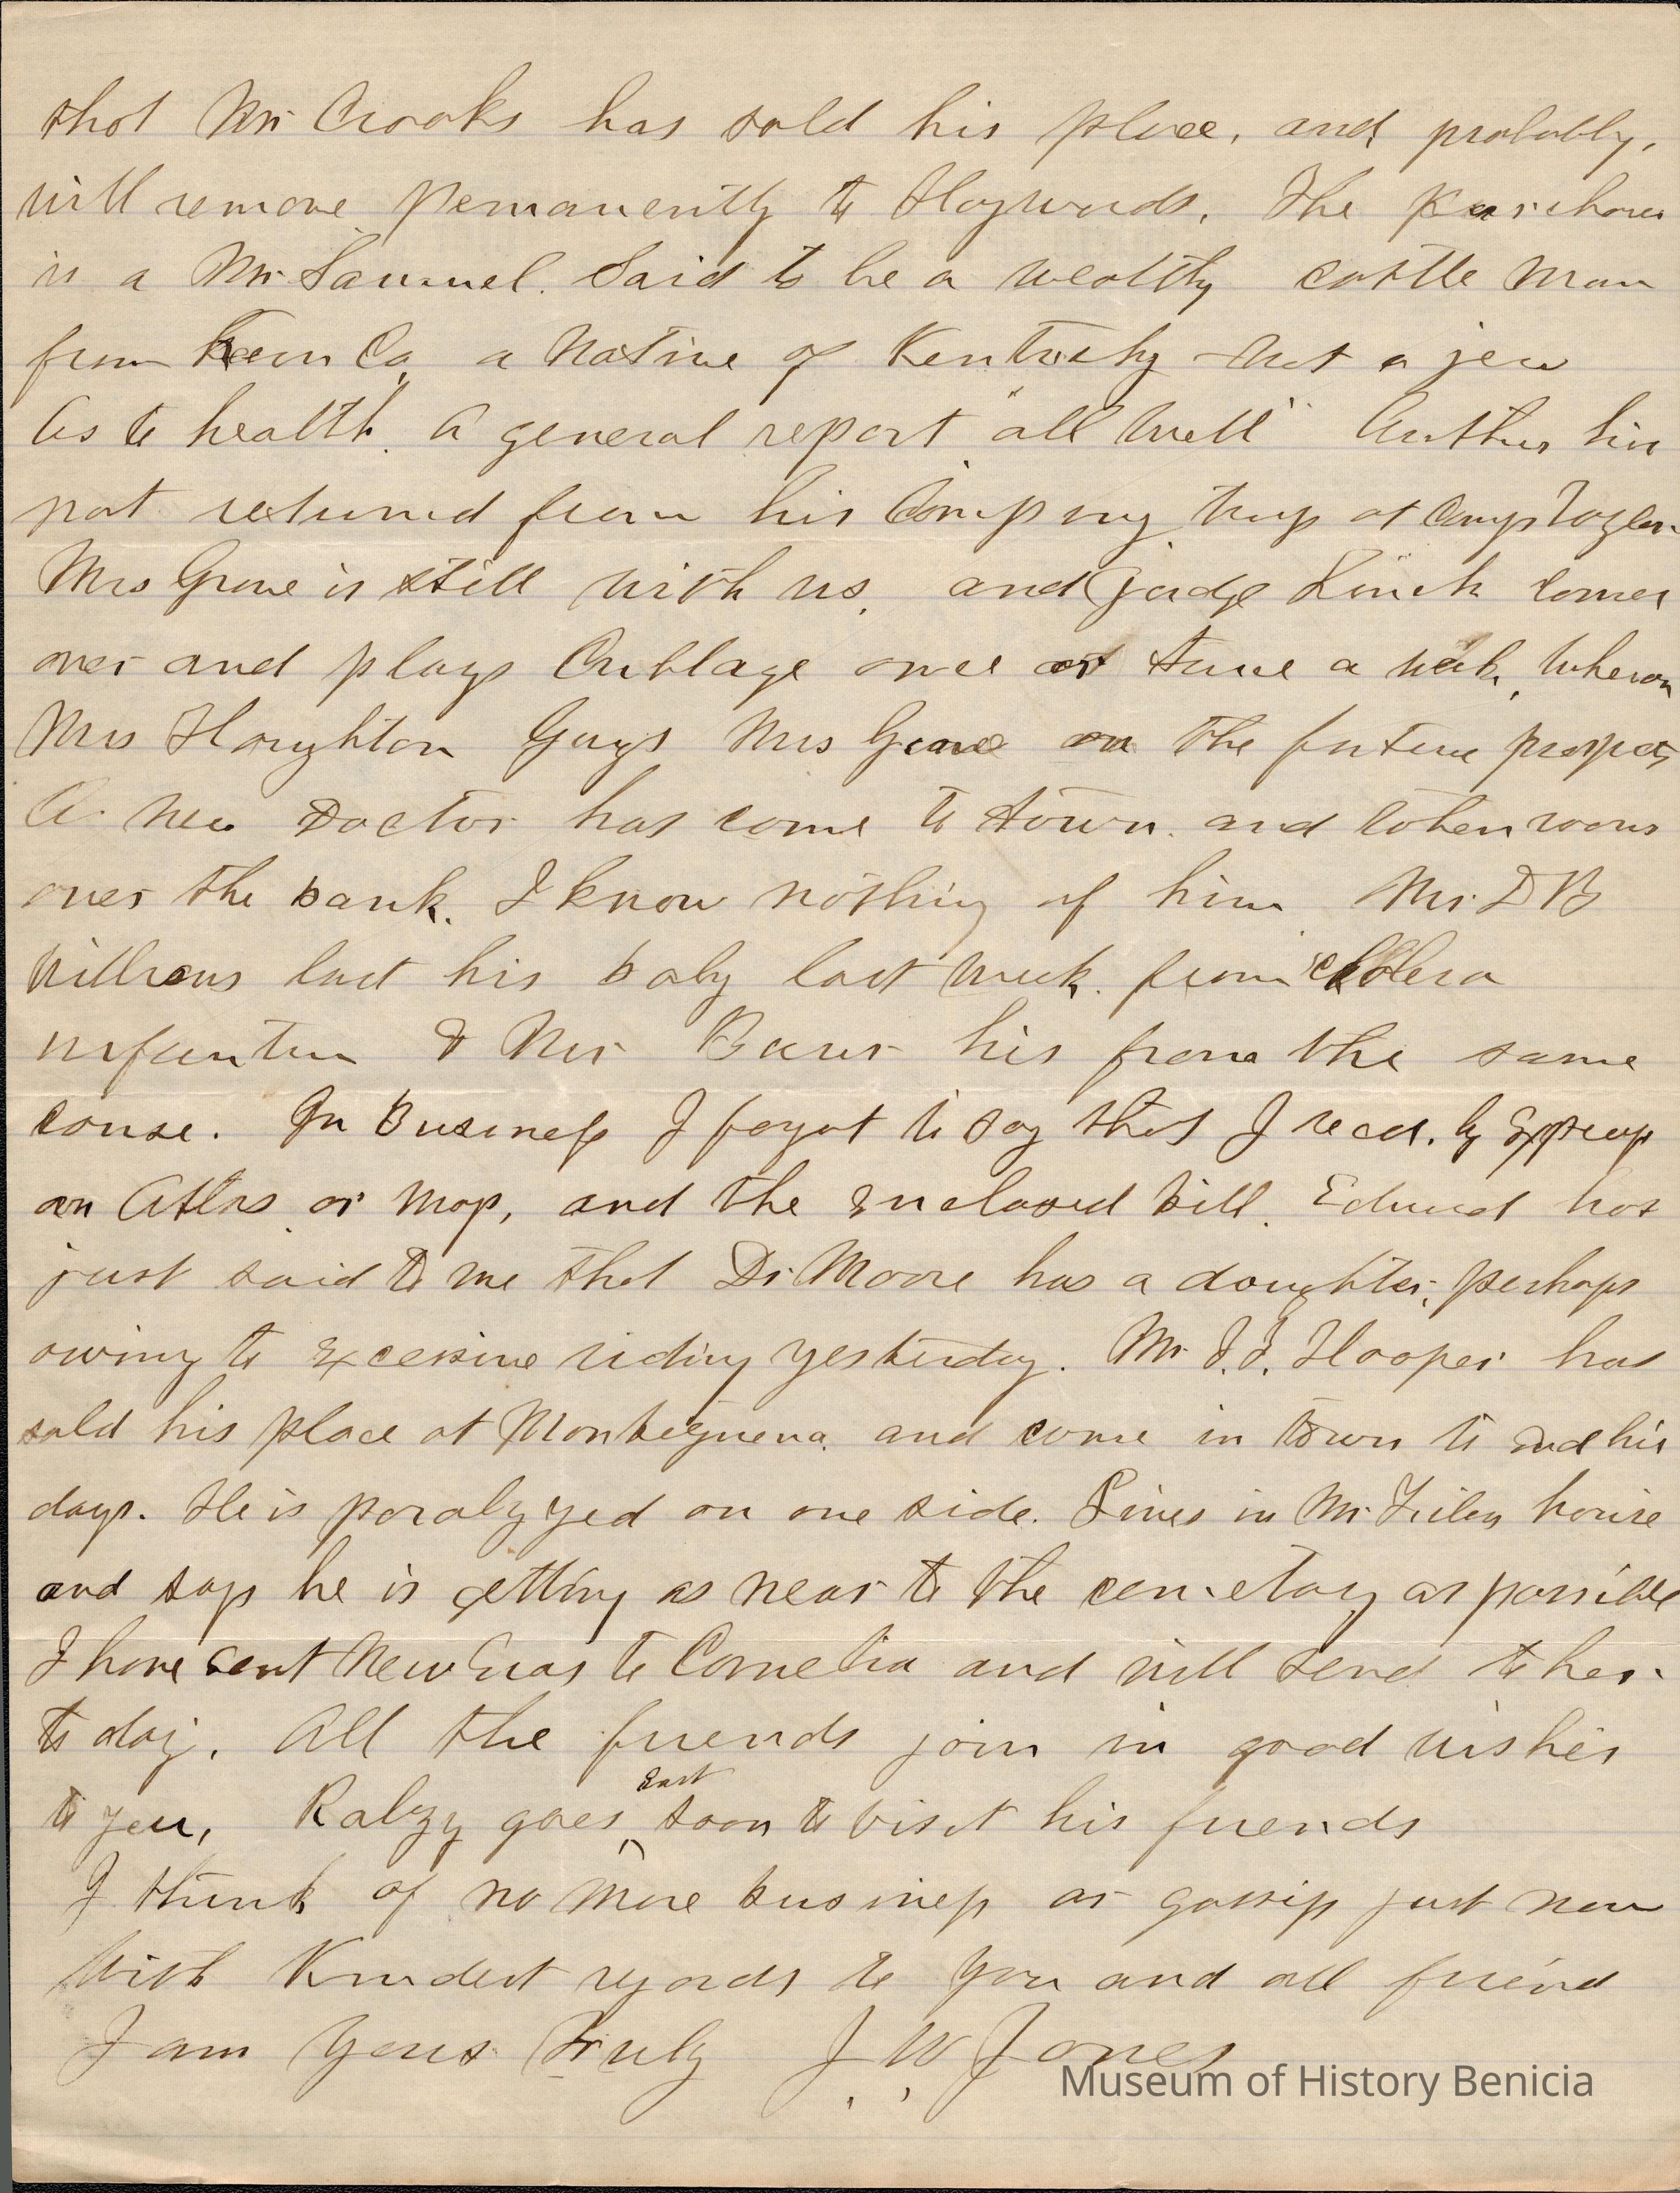 that Mr Crooks has sold his place, and probably,
will remove Pemanently to Haywards. The Purchaser
is a Mr. Samuel. Said to be a wealthy cattle man
from Kern Co, a native of Kentucky - not a jew
As to health. A general report "all well" Arthur his
not returned from his Camping trip at Camp
Mrs Grove is still with us, and judge Linch comes
over and plays Cribbage once or twice a week, Wheron
Mrs Houghton Guys Mrs Grove on the future prospects
A new Doctor has come to town. and taken rooms
over the bank. I know nothing of him Mr. D B
Williams lost his baby last week. from "cholera
infantum & Mr Bauer his from the same
cause. In Business I forgot to say that I recd. by Express
an Atlas or Map, and the Enclosed bill. Edward has
just said to me that Dr. Moore has a daughter, perhaps
owing to Excessive riding yesterday. Mr. J. J. Hooper has
sold his place at Montezuena. and come in town to end his
days. He is paralyzed on one side. Lives in Mr. house
and says he is getting as near to the cemetary as possible
I have sent New Eras to Cornelia and will send to her
to day. All the friends join in good wishes
to you, goes East soon to visit his friends
I think of no more business or gossip just now
With Kindest regards to you and all friend
I am Yours Truly J. W. Jones
Museum of History Benicia